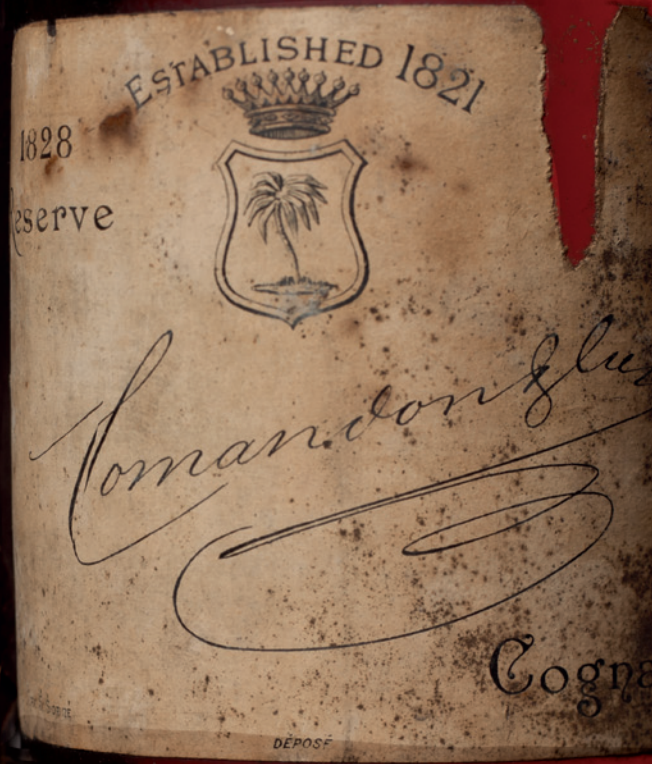 ESTABLISHED 1821
1828
eserve
Comandon &
Cogna
DÉPOSÉ